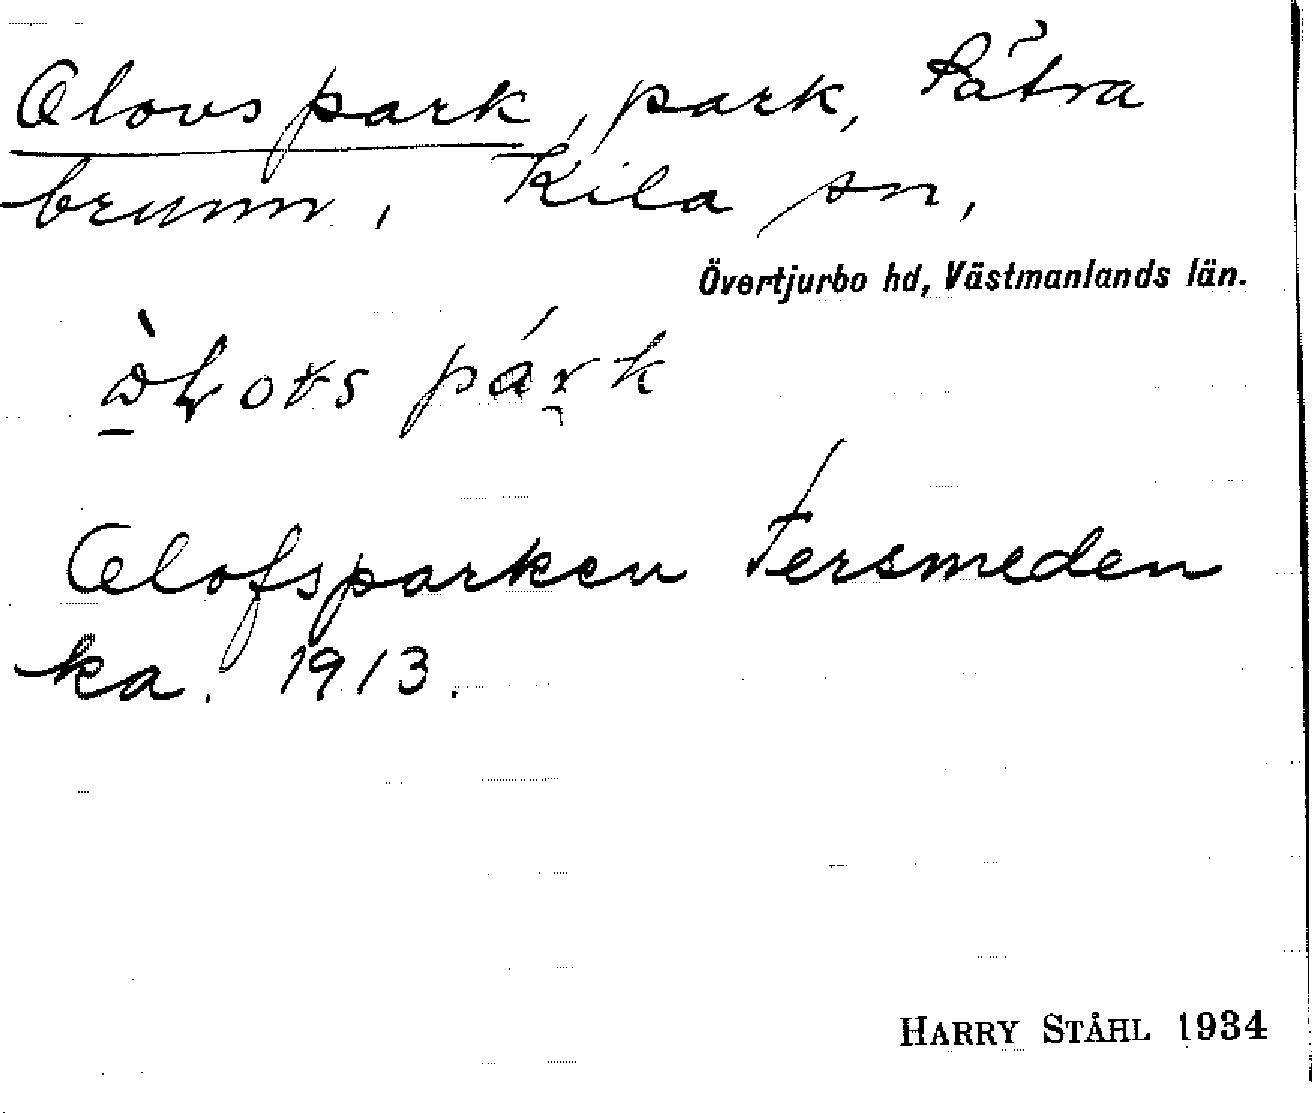 Olovspark, park, Sätra
brunn, Kila sn,
Övertjurbo hd, Västmanlands län.
park
Olofsparken Tersmeden
ka. 1913.
HARRY STÅHL 1934